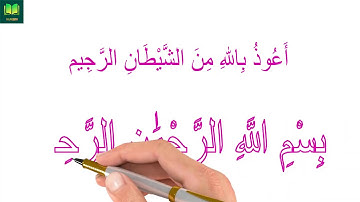 أَعُوذُ بِاللهِ مِنَ الشَّيْطَانِ الرَّجِيم
بِسْمِ اللَّهِ الرَّحْمَٰنِ الرَّحِ